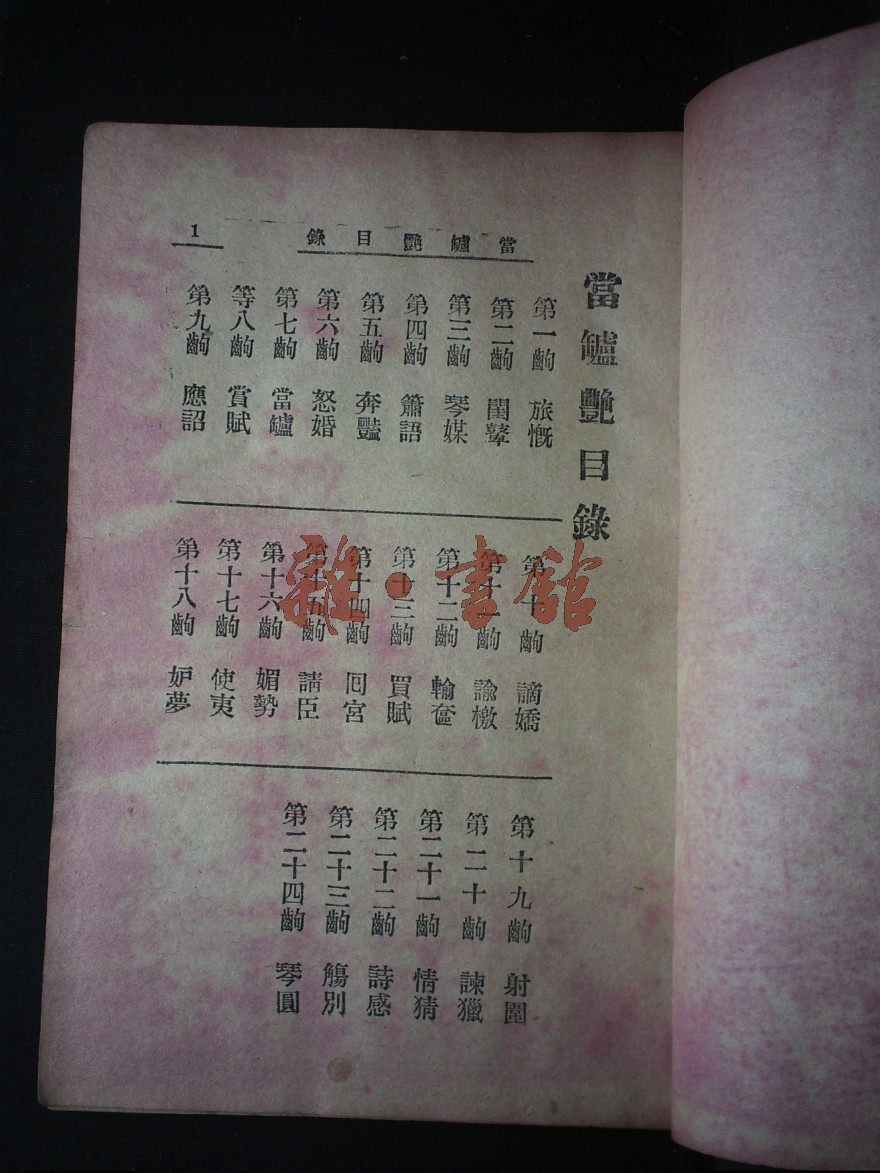 當鑪艷目錄
1
當鑪艷目錄
第一齣 旅慨
第二齣 閨顰
第三齣 琴媒
第四齣 簫語
第五齣 奔豔
第六齣 怒婚
第七齣 當鑪
等八齣 賞賦
第九齣 應詔
第十齣 謫嬌
第十一齣 諭檄
第十二齣 輸奩
第十三齣 買賦
第十四齣 囘宮
第十五齣 請臣
第十六齣 媚勢
第十七齣 使夷
第十八齣 妒夢
第十九齣 射圍
第二十齣 諫獵
第二十一齣 情猜
第二十二齣 詩感
第二十三齣 觴別
第二十四齣 琴圓
雜·書館